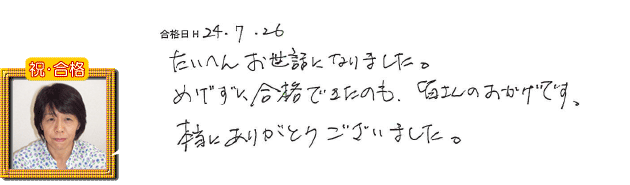 合格日 H 24.7.26
たいへんお世話になりました。
めげずに合格できたのも、皆さんのおかげです。
本当にありがとうございました。
祝・合格